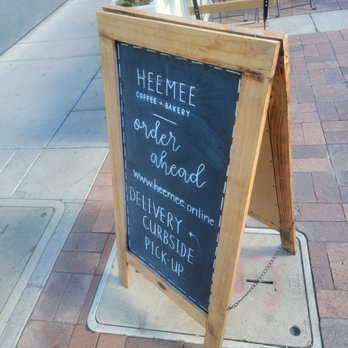 HEEMEE
COFFEE + BAKERY
order
ahead
www.heemee.online
DELIVERY +
CURBSIDE
PICK-UP